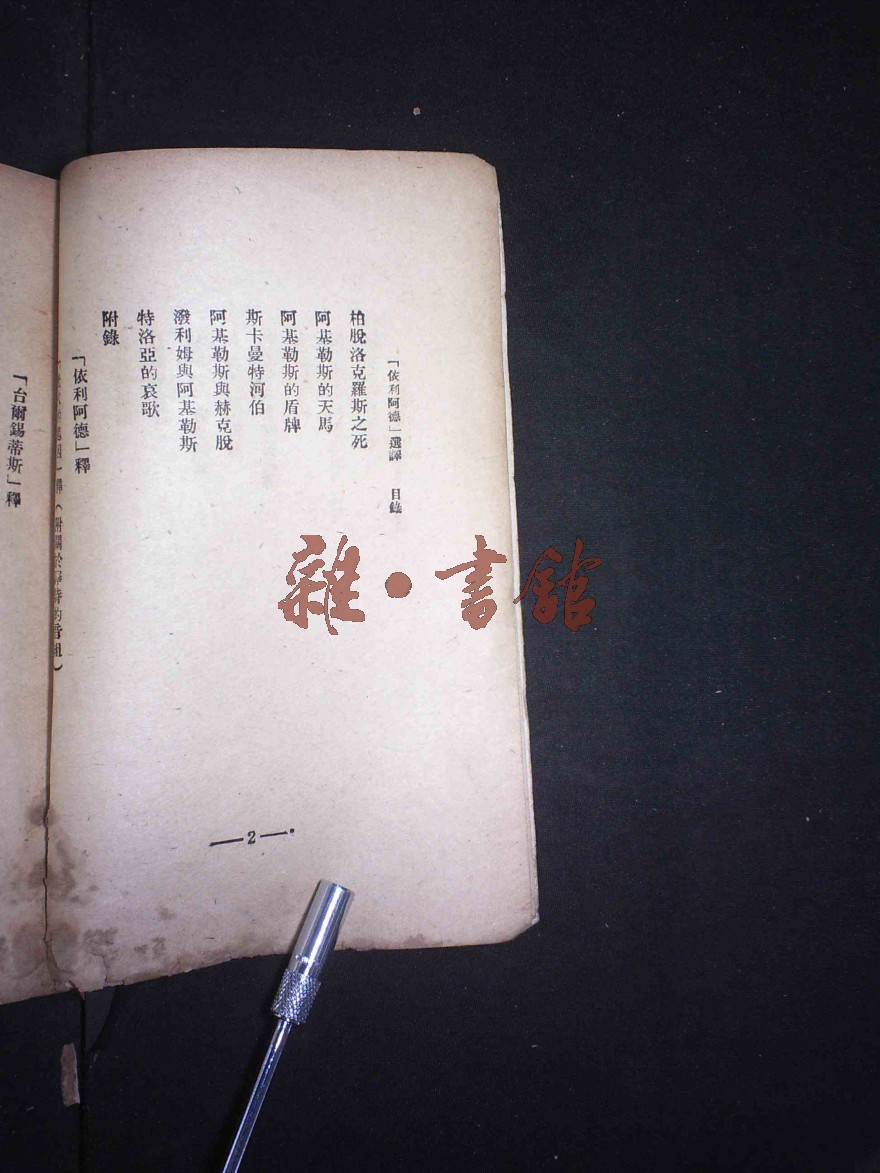 「依利阿德」選譯 目錄
柏脫洛克羅斯之死
阿基勒斯的天馬
阿基勒斯的盾牌
斯卡曼特河伯
阿基勒斯與赫克脫
潑利姆與阿基勒斯
特洛亞的哀歌
附錄
「依利阿德」釋
」釋(附關於
的
)
「台爾錫蒂斯」釋
—2—
雜·書館